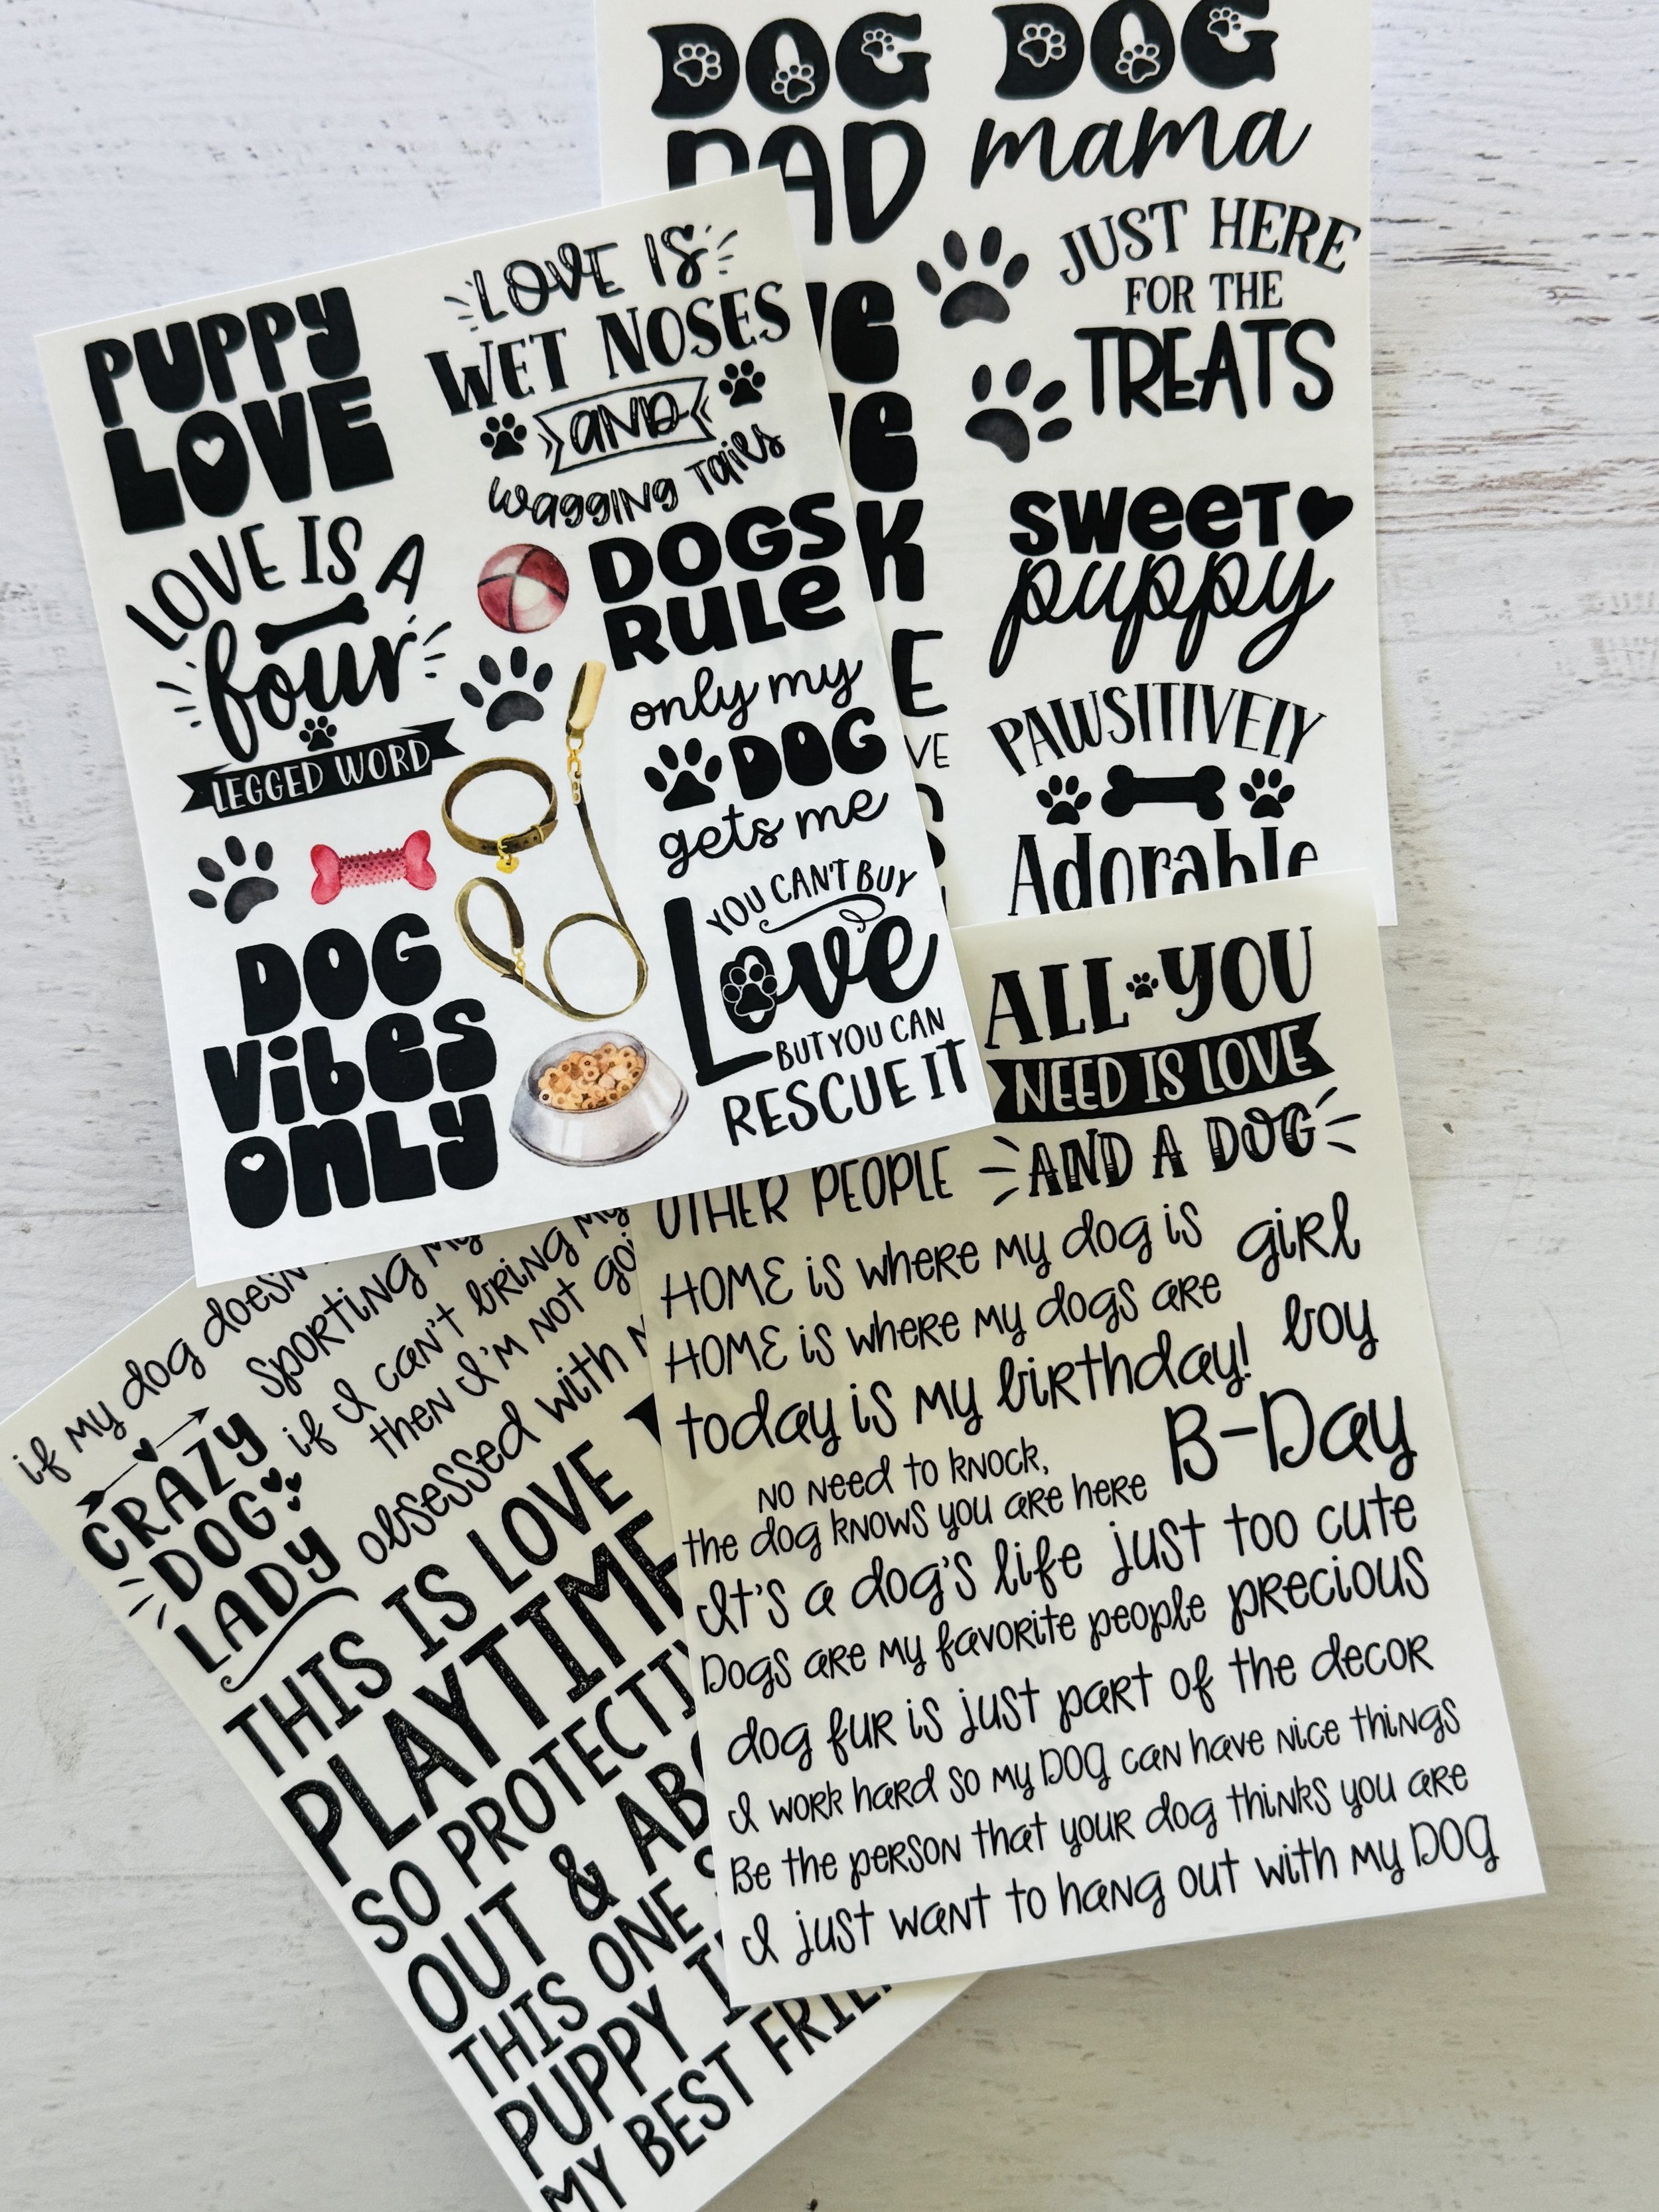 DOG
DAD
DOG
mama
JUST HERE
FOR THE
TREATS
K
E
VE
sweet
puppy
PAWSITIVELY
Adorable
PUPPY
LOVE
LOVE IS
WET NOSES
AND
wagging Tails
LOVE IS A
four
LEGGED WORD
DOGS
RULE
only my
DOG
gets me
DOG
VIBES
ONLY
YOU CAN'T BUY
Love
BUT YOU CAN
RESCUE IT
ALL YOU
NEED IS LOVE
AND A DOG
OTHER PEOPLE
HOME is where my dog is
girl
HOME is where my dogs are
boy
today is my birthday!
B-Day
NO Need to knock,
the dog knows you are here
It's a dog's life
just too cute
Dogs are my favorite people
precious
dog fur is just part of the decor
I work hard so my DOG can have nice things
Be the person that your dog thinks you are
I just want to hang out with my DOG
if my dog doesn
sporting my
if I can't bring my
then I'm not goi
CRAZY
DOG
LADY
obsessed with
THIS IS LOVE
PLAYTIME
SO PROTECTI
OUT & AB
THIS ONE
PUPPY
MY BEST FRIE